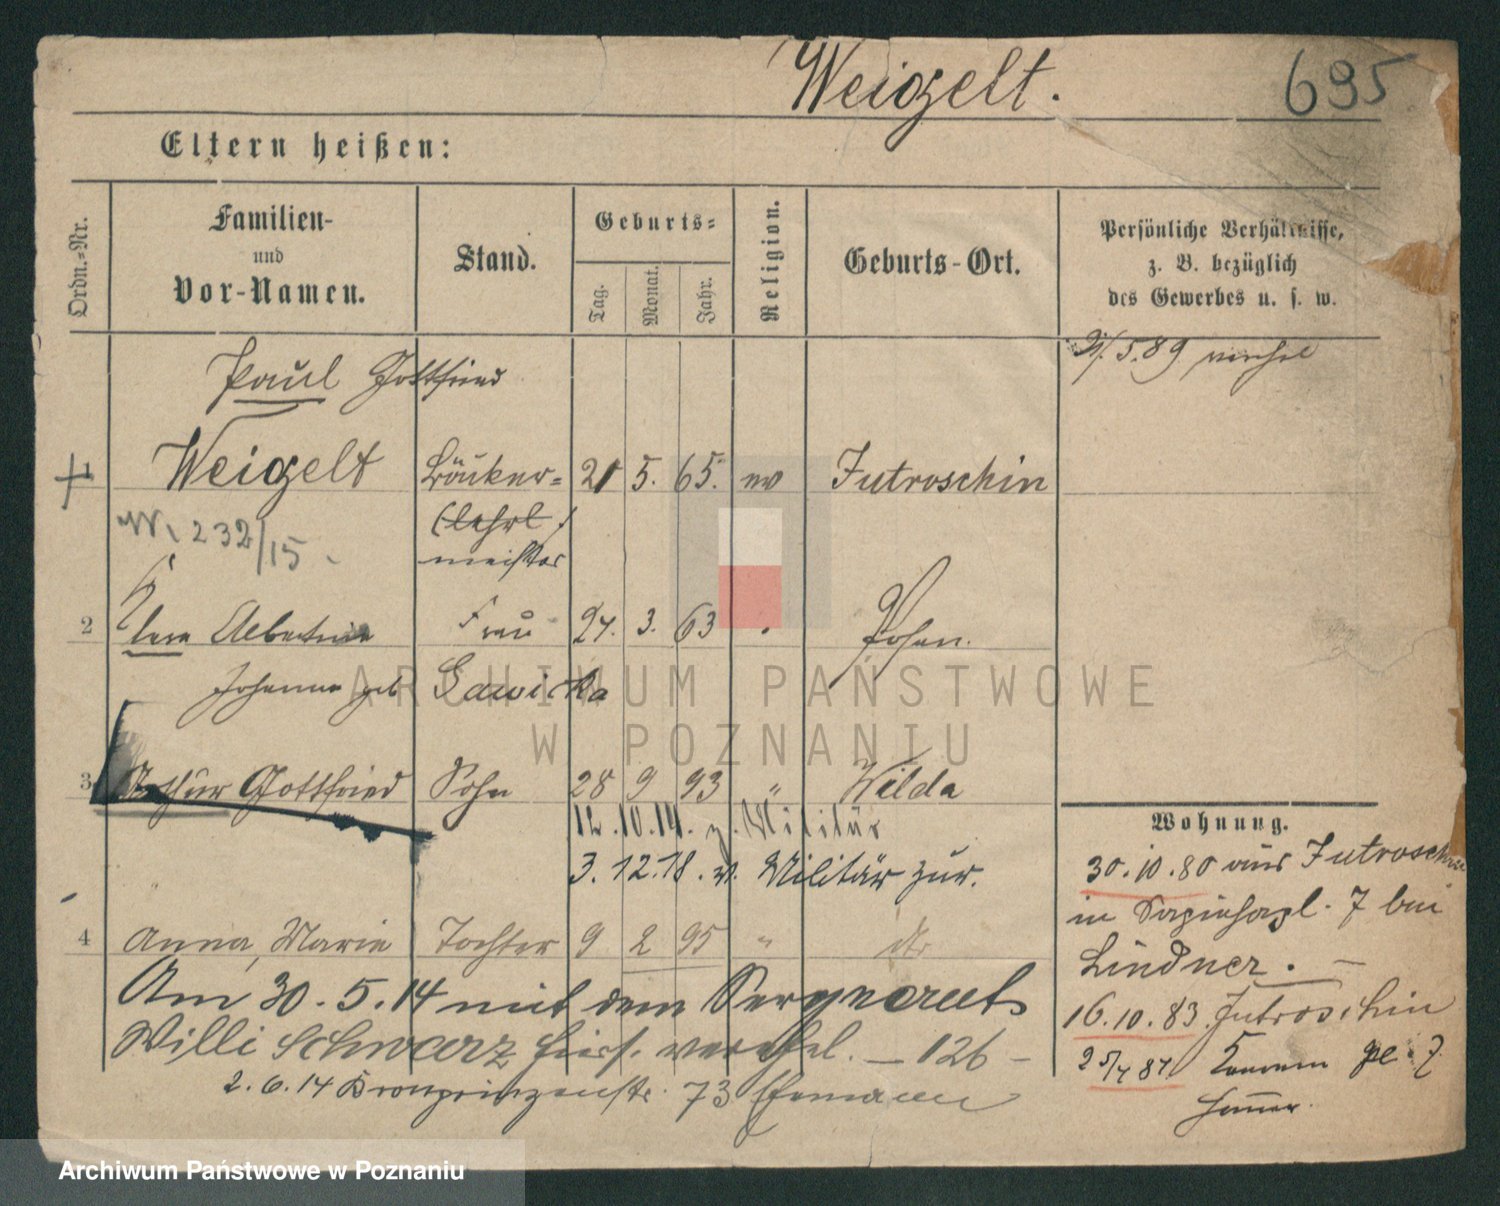 Weigelt.
695
Eltern heißen:
Ordn.-Nr.
Familien-
und
Vor-Namen.
Stand.
Geburts-
Tag.
Monat.
Jahr.
Religion.
Geburts-Ort.
Persönliche Verhältnisse,
z. B. bezüglich
des Gewerbes u. s. w.
Paul Gottfried
5.89
1 Weigelt 21 5. 65. ev Jutroschin
(lehrl.)
232/15
meister
2 Albertine Frau 24. 3. 63 Posen.
Johanna geb Gawicka
3 Arthur Gottfried Sohn 28 9 93 " Wilda
12.10.14. z. Militär
3.12.18. v. Militär zur.
4 Anna, Marie Tochter 9 2 95 " dto
Am 30.5.14 mit dem Sergeant
Willi Schwarz hies. verehel. — 126 —
2.6.14 Kronprinzenstr. 73 Ehemann
Wohnung.
30.10.80 aus Jutroschin
in Sapiehapl. 7 bei
Lindner. —
16.10.83 Jutroschin
25/4 87 pl. 7
ARCHIWUM PAŃSTWOWE
W POZNANIU
Archiwum Państwowe w Poznaniu